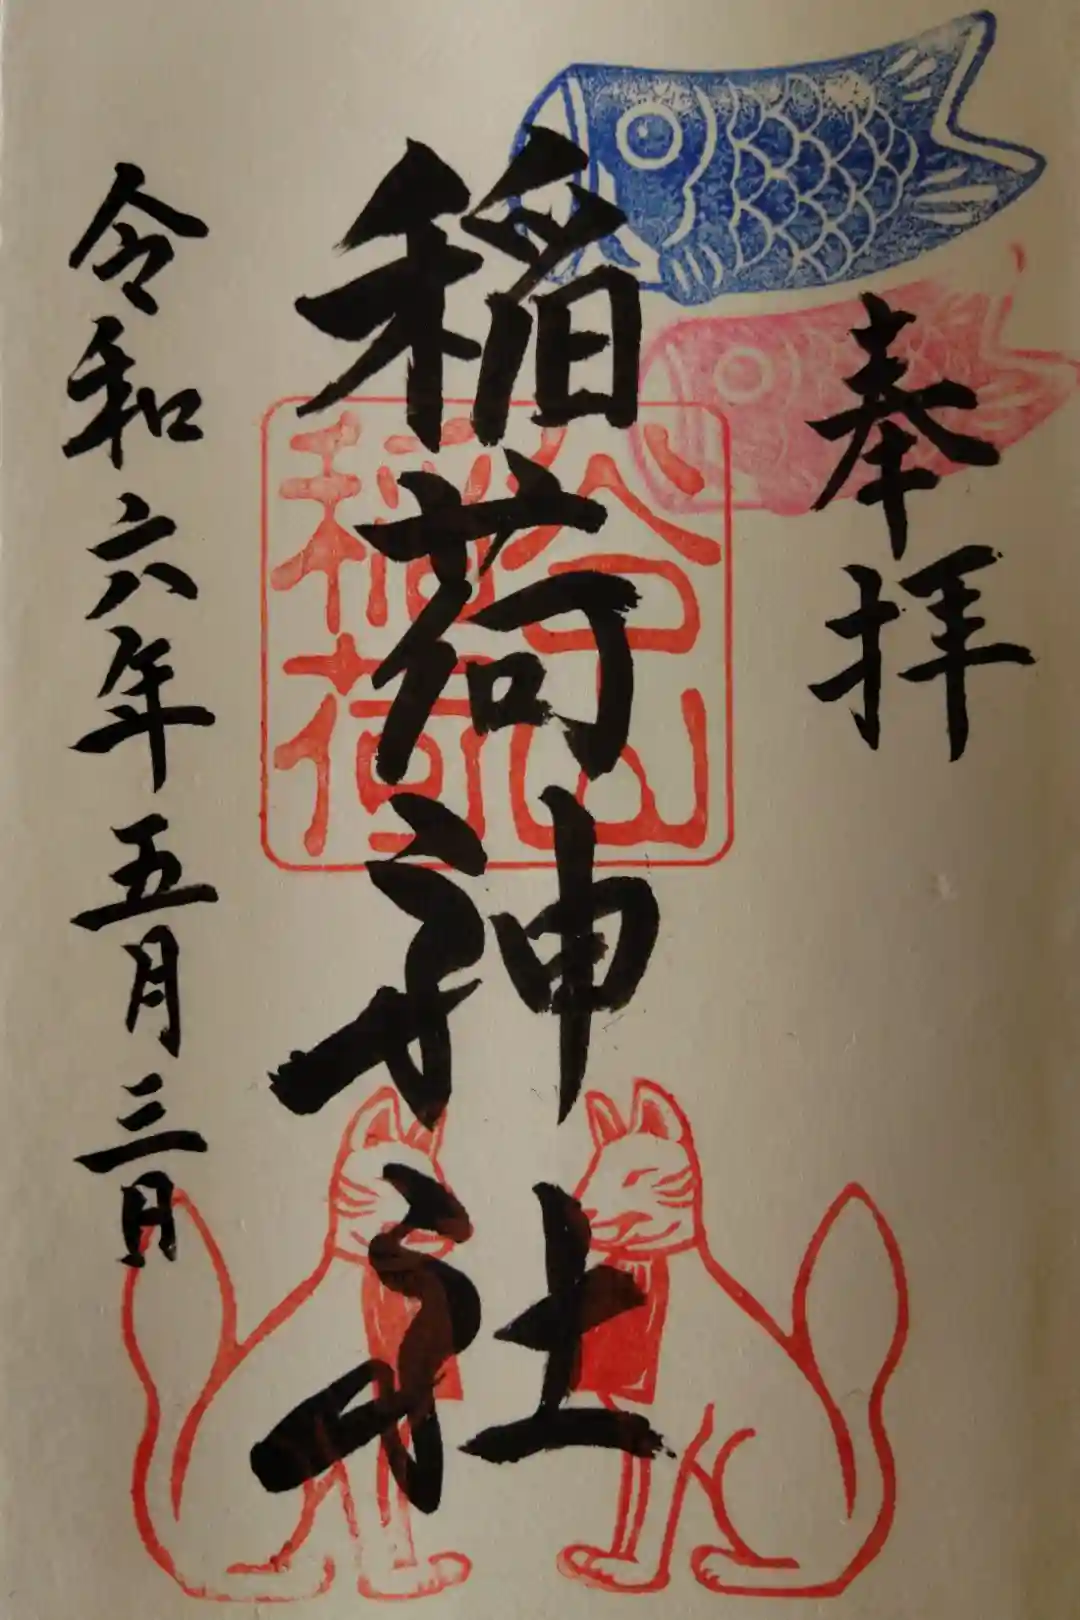 奉拝
稲荷神社
谷山
稲荷
令和六年五月三日